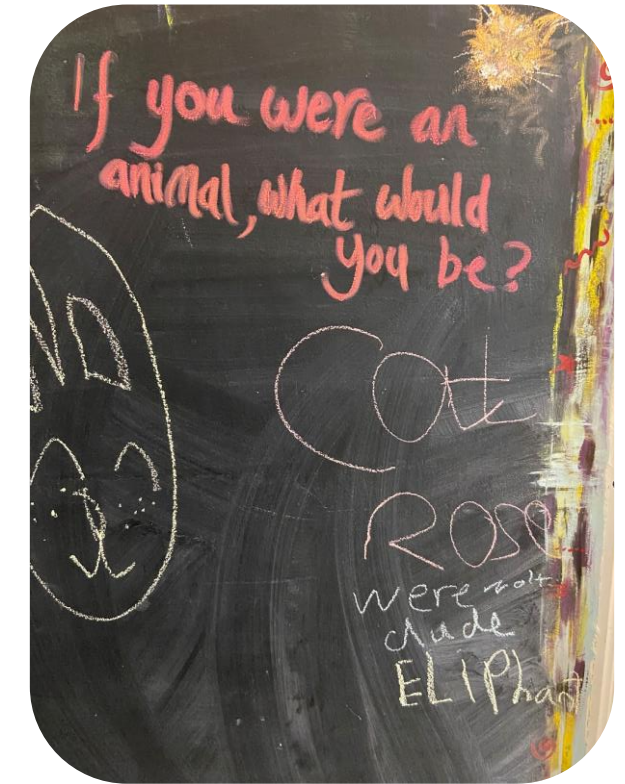 If you were an
animal, what would
you be?
Cat
ROSe
were
dude
ELIPhant